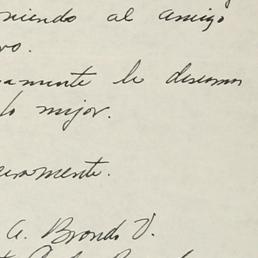 niendo al amigo
vo.
amente le deseamos
lo mejor.
ceramente.
A. Brondo V.